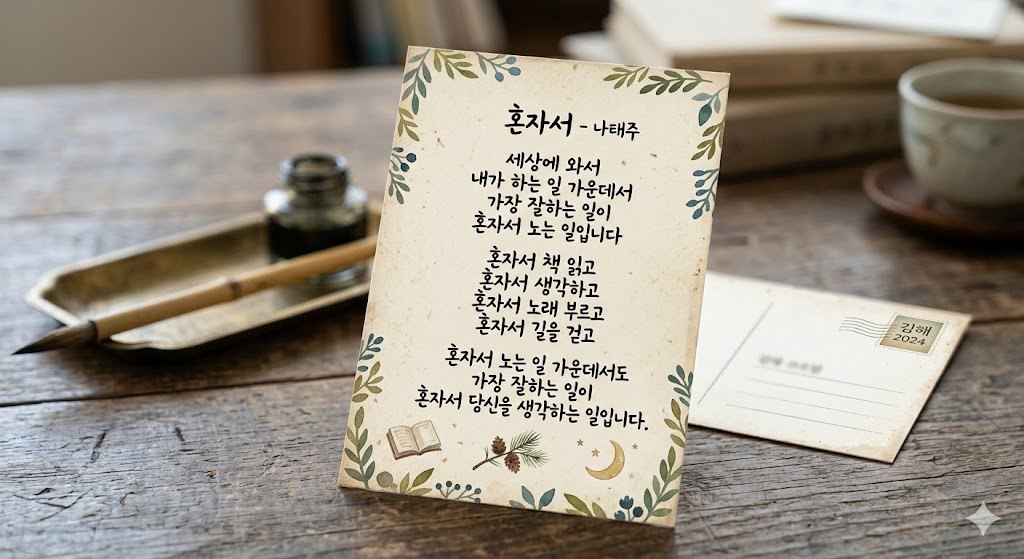 혼자서 - 나태주
세상에 와서
내가 하는 일 가운데서
가장 잘하는 일이
혼자서 노는 일입니다
혼자서 책 읽고
혼자서 생각하고
혼자서 노래 부르고
혼자서 길을 걷고
혼자서 노는 일 가운데서도
가장 잘하는 일이
혼자서 당신을 생각하는 일입니다.
김해
2024